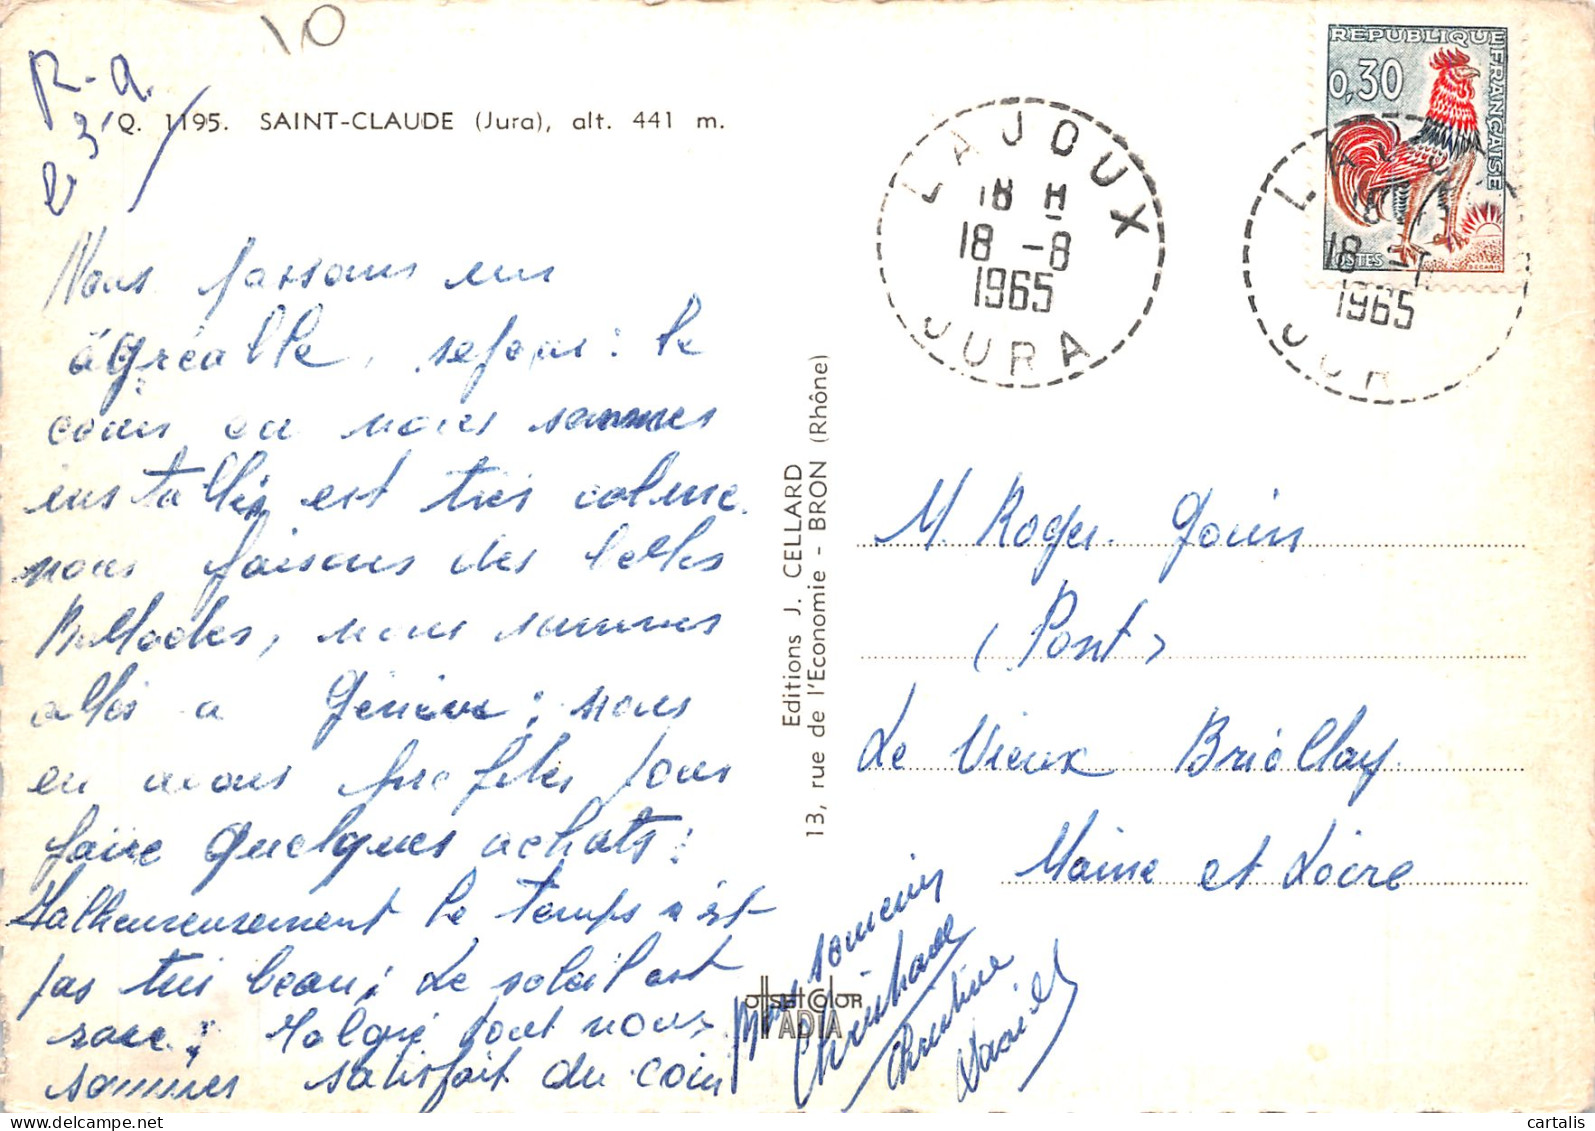 10
R.A.
Q. 1195. SAINT-CLAUDE (Jura), alt. 441 m.
REPUBLIQUE FRANÇAISE
0,30
POSTES
DECARIS
LAJOUX
18 H
18 -8
1965
JURA
LAJOUX
18
18
1965
JUR
Nous passons un
agréable, sejour : le
coin ou nous sommes
installés est très calme.
nous faisons des belles
Ballades, nous sommes
allés a Génève ; nous
en avons profités pour
faire quelques achats ;
Malheureusement le temps n'est
pas très beau ; Le soleil est
rare ; Malgré tout nous
sommes satisfait du coin
Bons souvenirs
Christiane
Christine
Daniel
Editions J. CELLARD
13, rue de l'Economie - BRON (Rhône)
offset color
ADIA
M. Roger Gouin
(Pont)
Le Vieux Briollay
Maine et Loire
cartalis